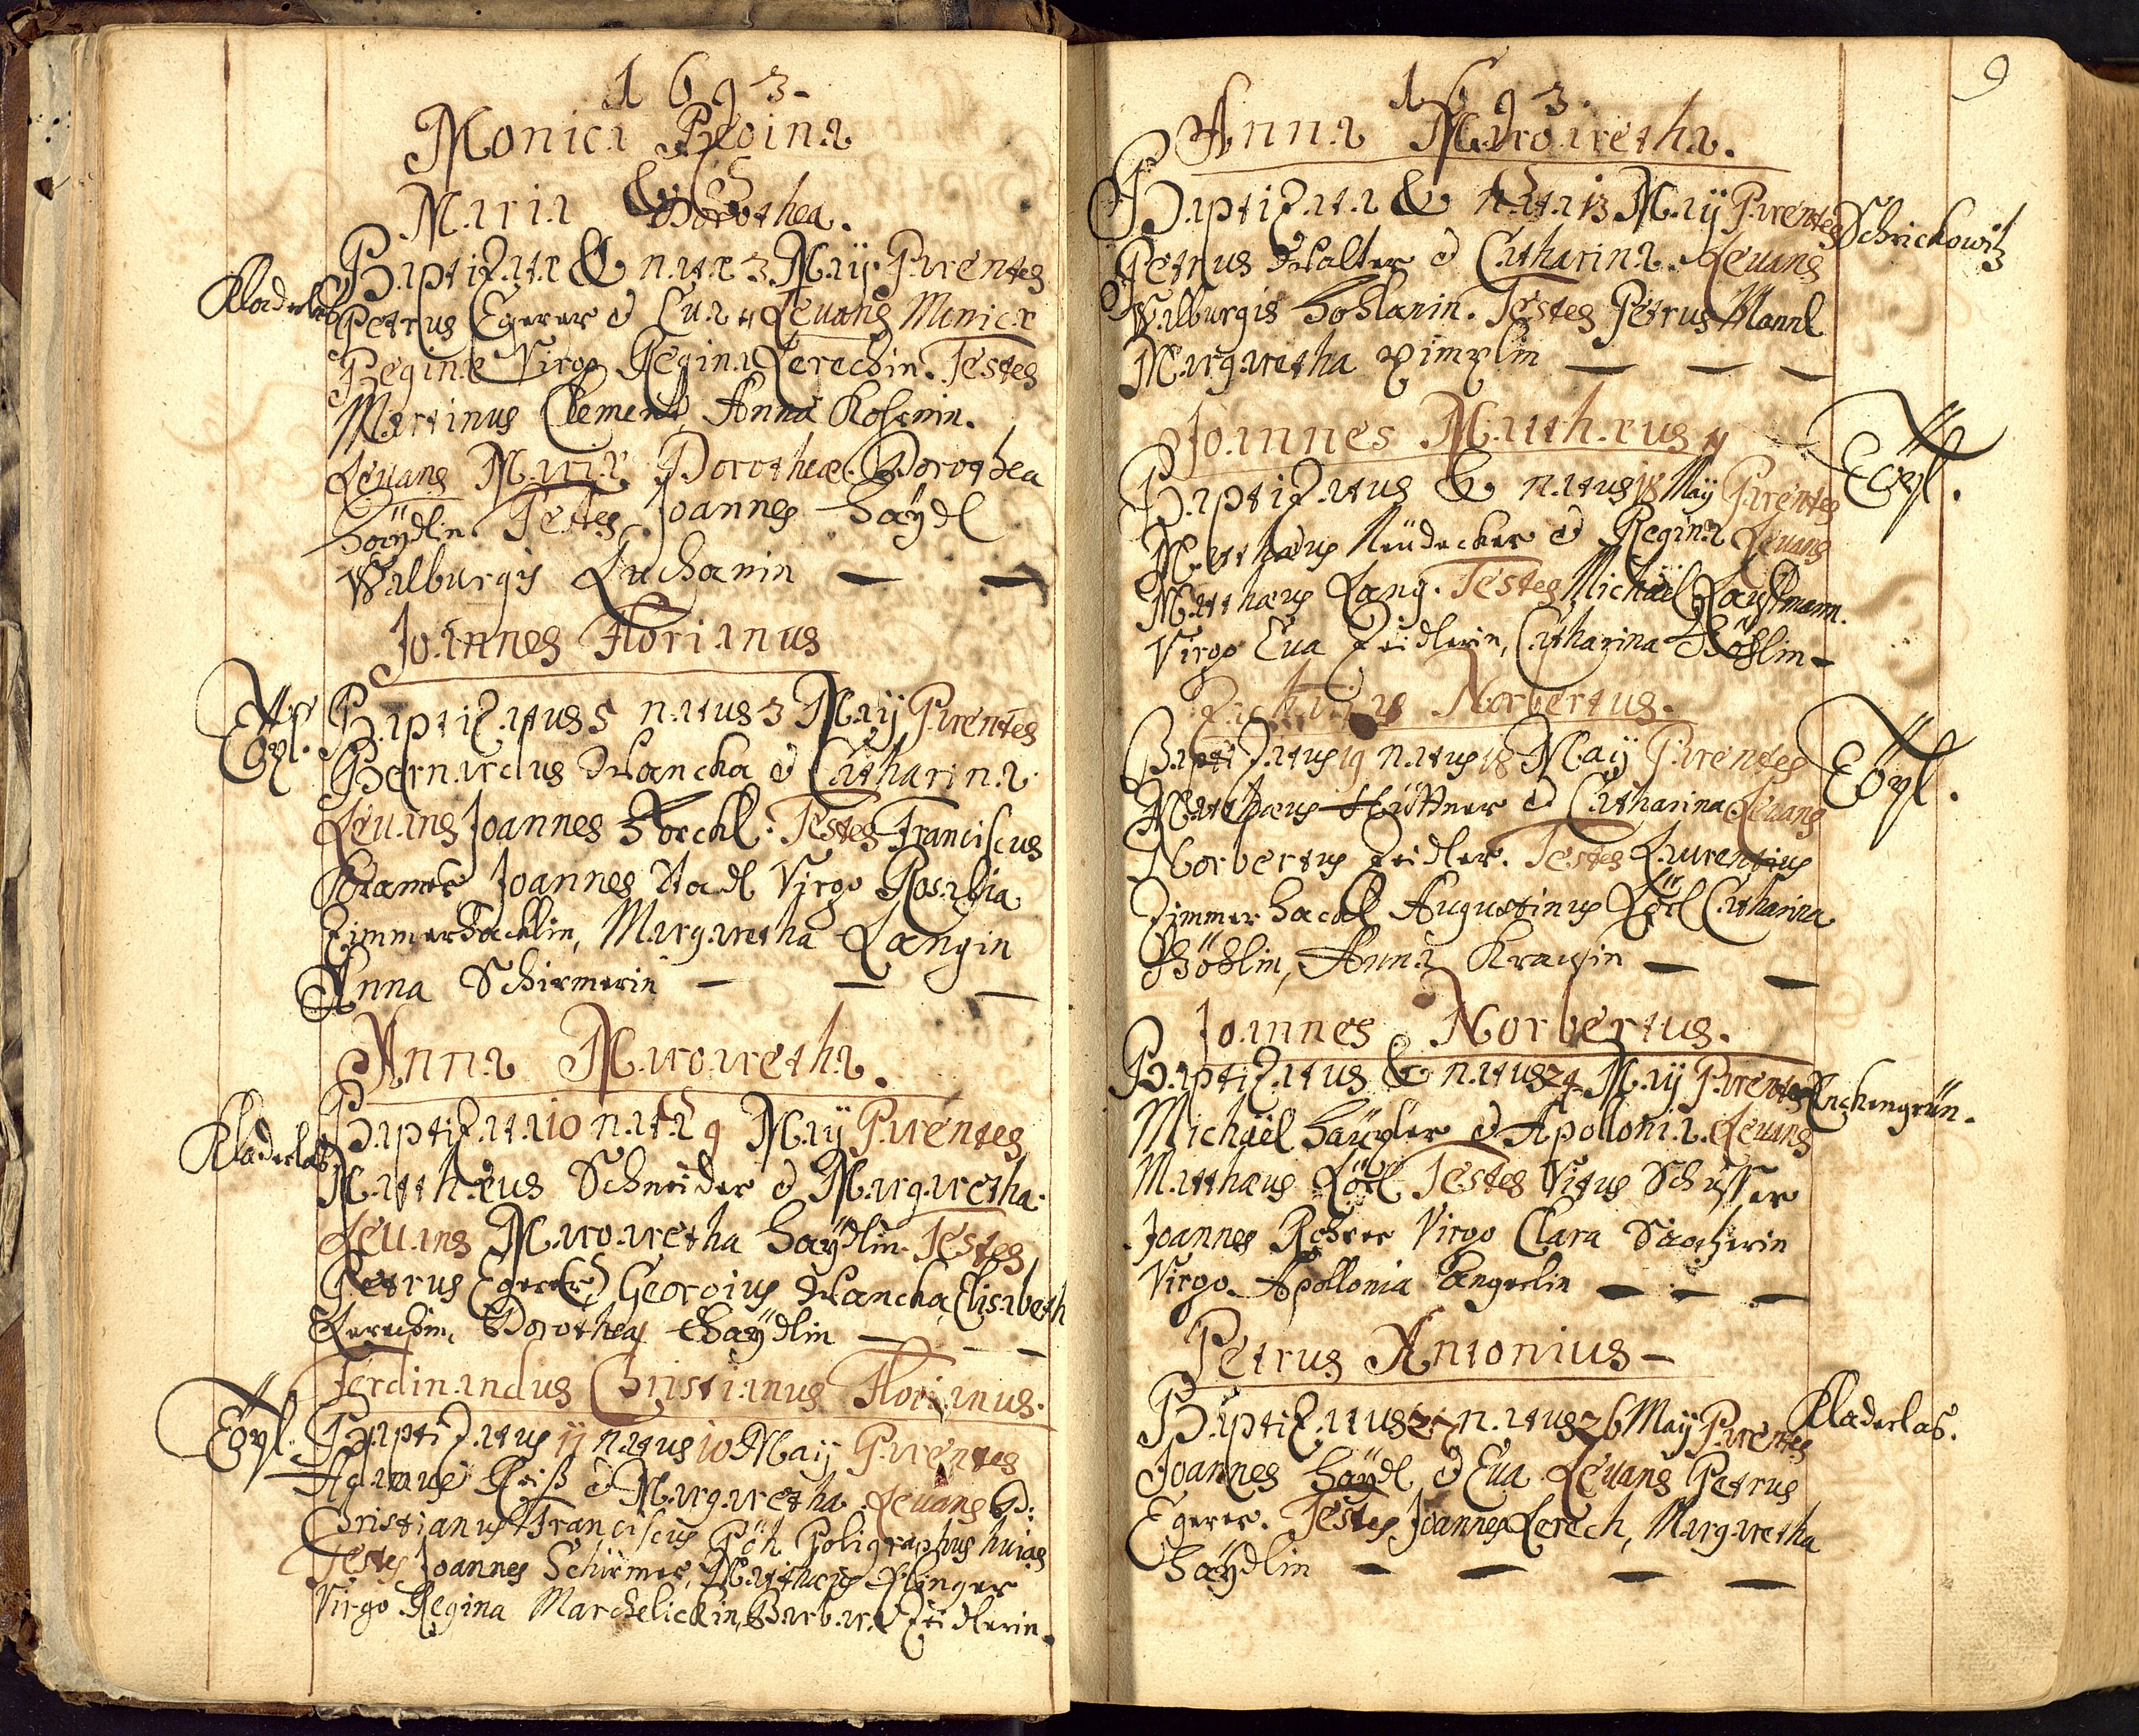 1693.
Monica Regina
&
Maria Dorothea.
Baptizatæ & natæ 3 Maij Parentes
Kladerlas
Petrus Egerer et Eva. Levans Monicæ
Reginæ Virgo Regina Lerechin. Testes
Martinus Clement, Anna
Levans Mariæ Dorotheæ. Dorothea
Haÿdlin. Testes Joannes Haÿdl
Walburgis Luchanin
Joannes Florianus
Töpl. Baptizatus 5 natus 3 Maij Parentes
Bernardus Wancka et Catharina.
Levans Joannes Böckl. Testes Franciscus
Kramer Joannes Stadl Virgo Rosalia
Zimmerhacklin, Margaretha Langin
Anna Schirmerin
Anna Margaretha.
Baptizata 10 nata 9 Maij Parentes
Kladerlas
Matthæus Schneider et Margaretha.
Levans Margaretha Haÿdlin. Testes
Petrus Egerer, Georgius Wancka, Elisabeth
Lerechin, Dorothea Haÿdlin
Ferdinandus Christianus Florianus.
Töpl. Baptizatus 11 natus 10 Maij Parentes
Adamus Reiß et Margaretha Levans D:
Christianus Franciscus Pöh Poligraphus huias
Testes Joannes Schirmer, Matthæus Plinger
Virgo Regina Marchelickin, Barbara Zeidlerin.
9
1693.
Anna Margaretha.
Baptizata & nata 13 Maij Parentes Schrickowitz
Petrus Walter et Catharina. Levans
Walburgis Hohlanin. Testes Petrus Mannl
Margaretha Pimplin
Joannes Matthæus
Töpl.
Baptizatus & natus 18 Maij Parentes
Matthæus Neüdecker et Regina Levans
Matthæus Lang. Testes Michaël Kauffmann.
Virgo Eva Zeidlerin, Catharina Böhlin
Zacharias Norbertus.
Töpl.
Baptizatus 19 natus 18 Maij Parentes
Matthæus Hüttner et Catharina Levans
Norbertus Zeidler. Testes Laurentius
Zimmerhackl Augustinus Löll Catharina
Böhlin, Anna Krausin
Joannes Norbertus.
Baptizatus & natus 24 Maij Parentes Enchengrün.
Michaël Haüsler et Apollonia. Levans
Matthæus Löll Testes Vitus Schusser
Joannes Rohrer Virgo Clara
Virgo Apollonia Langerlin
Petrus Antonius
Baptizatus 27 natus 26 Maij Parentes Kladerlas.
Joannes Haÿdl et Eva Levans Petrus
Egerer. Testes Joannes Lerech, Margaretha
Haÿdlin